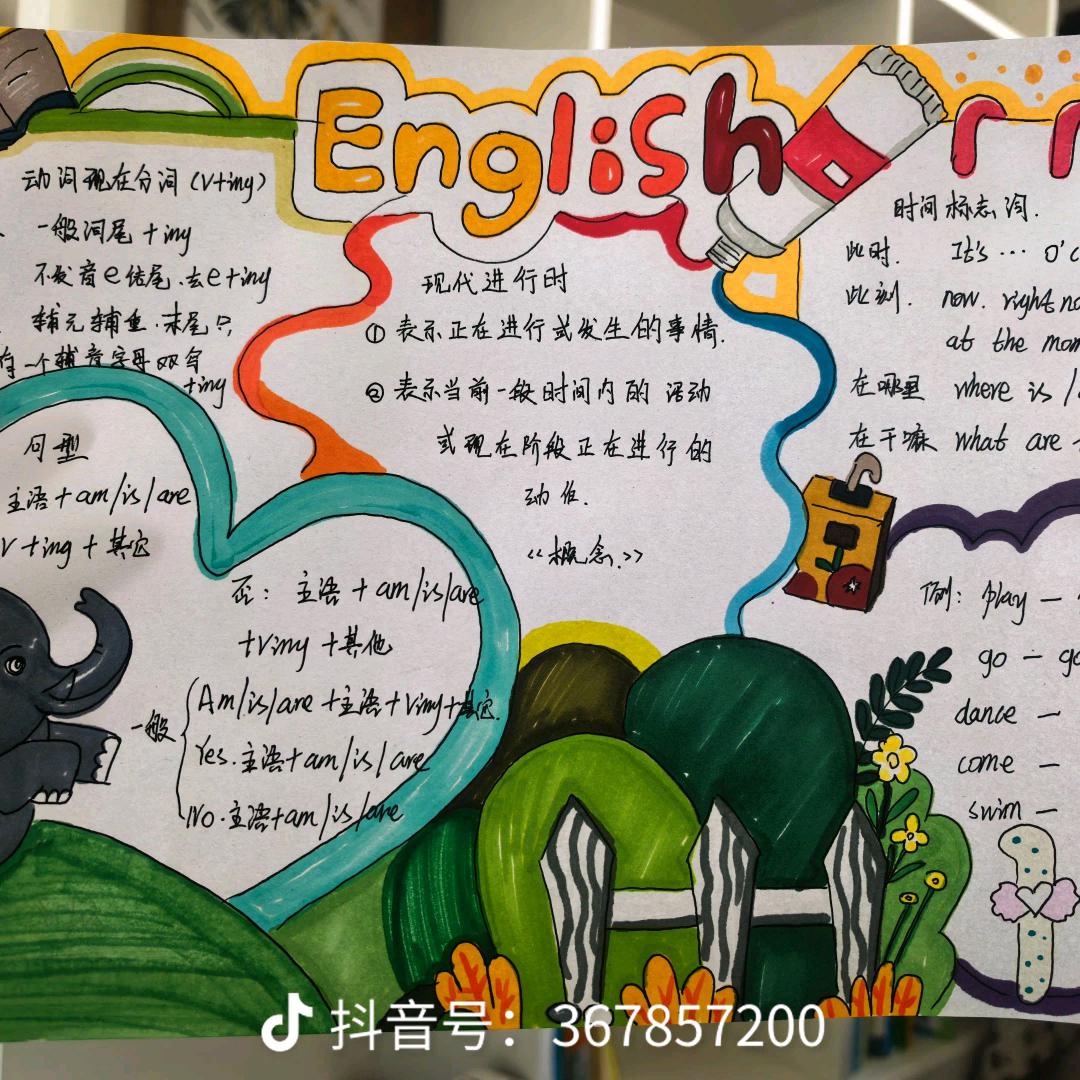 English
动词现在分词（V+ing）
一般词尾 +ing
不发音e结尾.去e+ing
辅元辅重.末尾只
有一个辅音字母双写
+ing
句型
主语+am/is/are
V+ing+其它
否：主语+am/is/are
+Ving+其他
一般
Am/is/are+主语+Ving+其它.
Yes.主语+am/is/are
No.主语+am/is/are
现代进行时
① 表示正在进行或发生的事情.
② 表示当前一般时间内的 活动
或现在阶段正在进行的
动作.
<<概念.>>
时间标志词.
此时. It's … o'c
此刻. now. right no
at the mom
在哪里 where is /
在干嘛 what are
例：play —
go — go
dance —
come —
swim —
抖音号：367857200